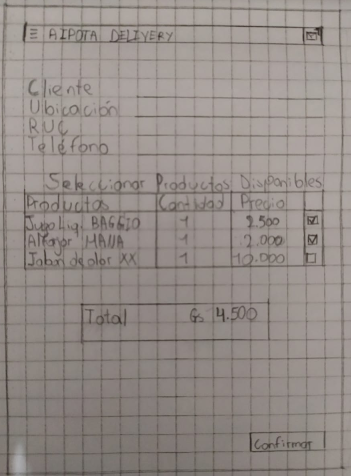 AIPOTA DELIVERY
Cliente
Ubicación
RUC
Teléfono
Seleccionar Productos Disponibles
Productos Cantidad Precio
Jugo Liq. BAGGIO 1 2.500
Alfajor 1 2.000
Jabon de olor XX 1 10.000
Total Gs 4.500
Confirmar